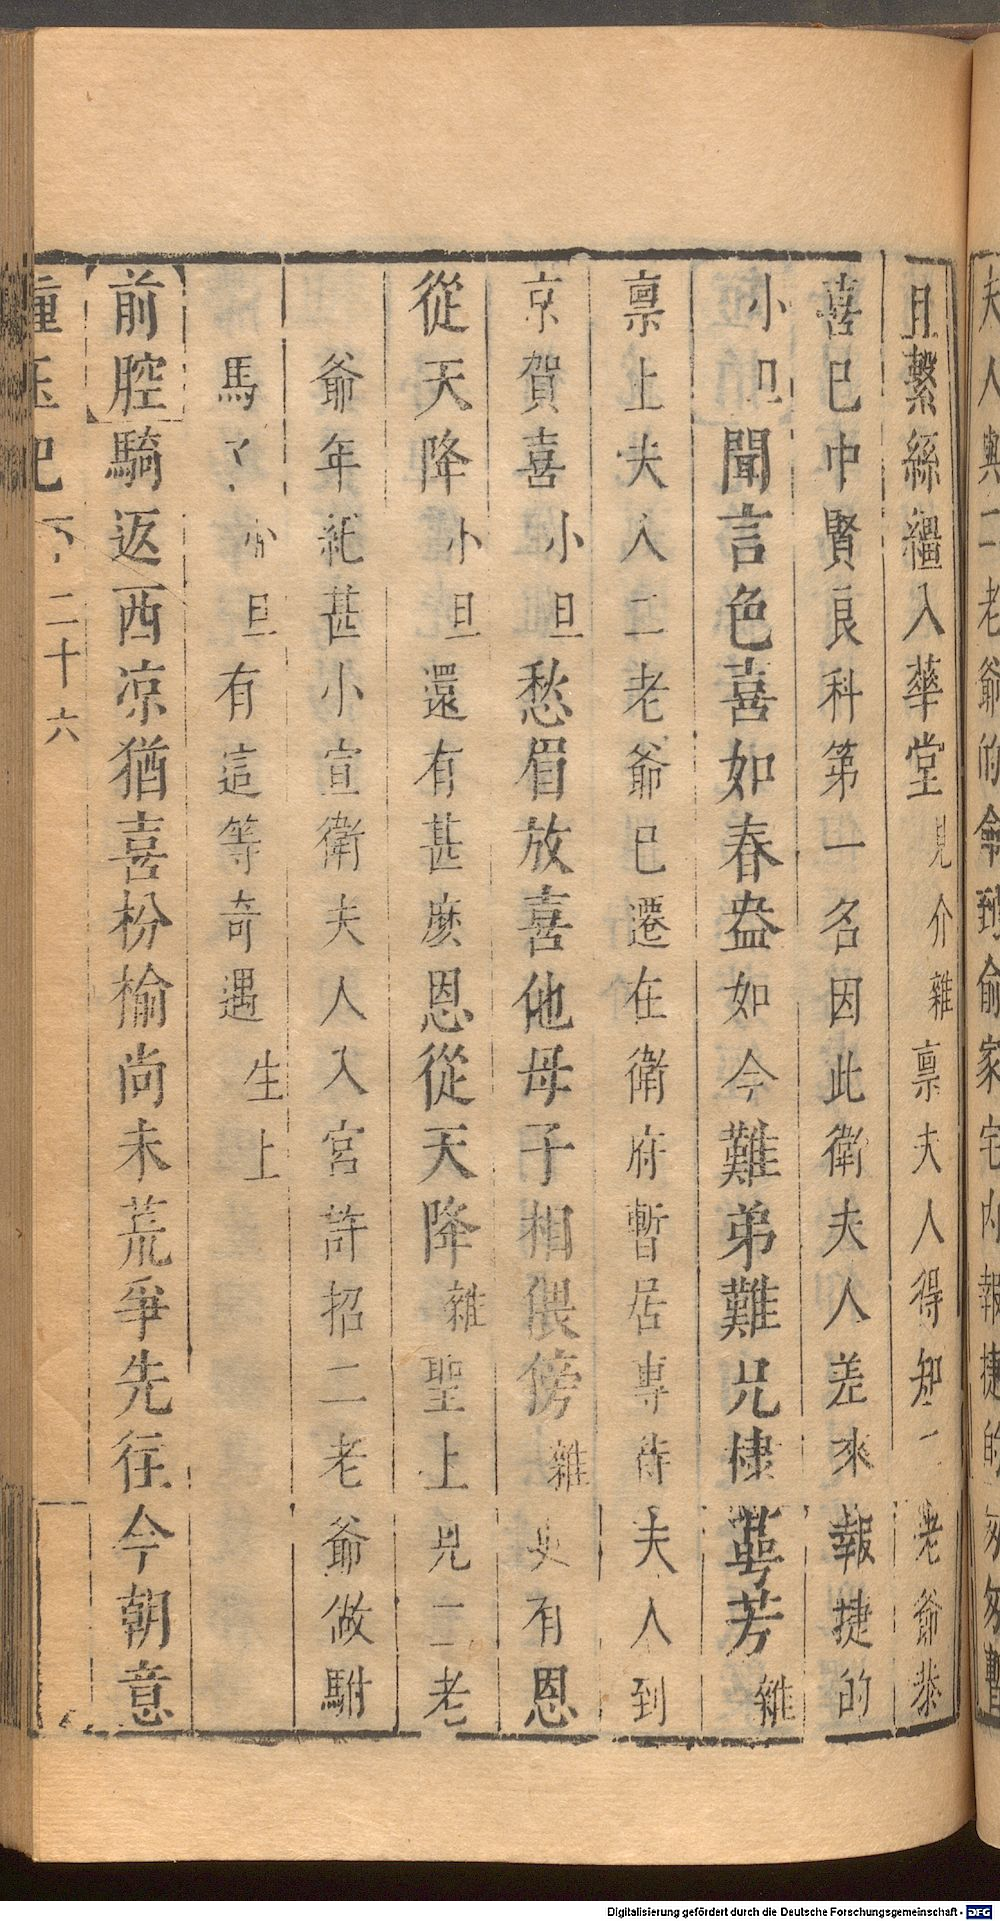 夫人與二老爺的會到俞家宅內報捷的匆匆暫
且繫絲繮入華堂見介雜禀夫人得知二老爺恭
喜已中賢良科第一名因此衛夫人差來報捷的
小旦聞言色喜如春盎如今難弟難兄棣萼芳雜
禀上夫人二老爺已遷在衛府暫居專待夫人到
京賀喜小旦愁眉放喜他母子相偎傍雜更有恩
從天降小旦還有甚麽恩從天降雜聖上見二老
爺年紀甚小宣衛夫人入宮許招二老爺做駙
馬了小旦有這等奇遇生上
前腔騎返西凉猶喜枌榆尚未荒爭先往今朝意
玉記 下 二十六
Digitalisierung gefördert durch die Deutsche Forschungsgemeinschaft - DFG